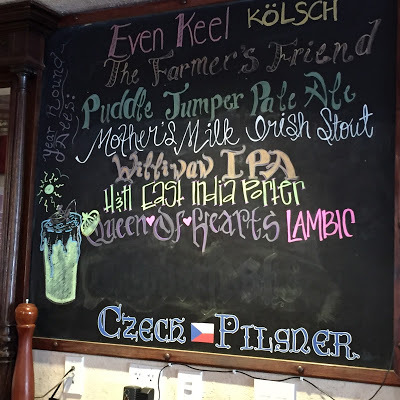 Year Round
Brews:
Even Keel KÖLSCH
The Farmer's Friend
Puddle Jumper Pale Ale
Mother's Milk Irish Stout
Willivav IPA
H3H East India Porter
Queen Of Hearts LAMBIC
CZECH PILSNER